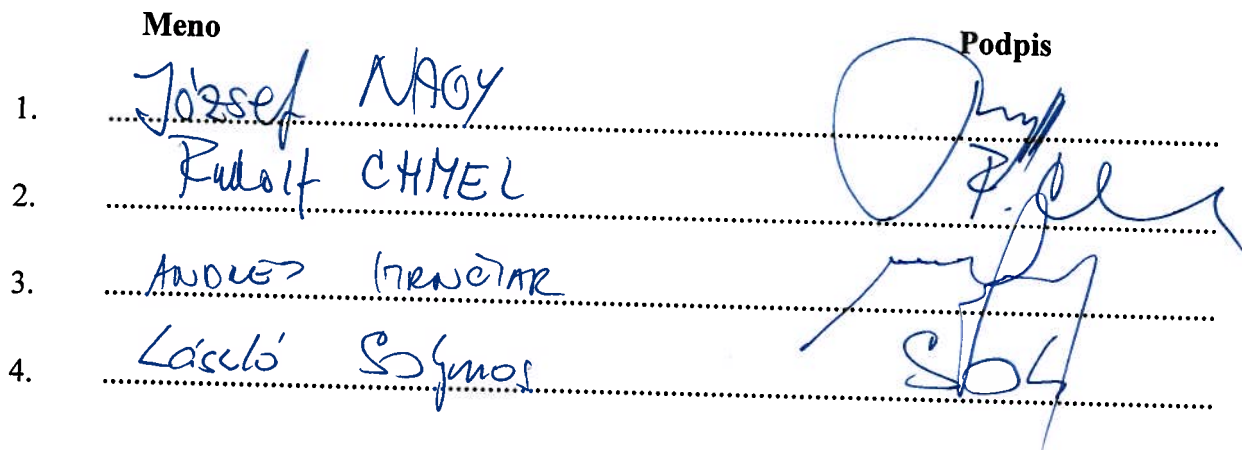 Meno Podpis
1. József NAGY
2. Rudolf CHMEL R. Chmel
3. ANDREJ HRNČIAR
4. László Solymos Sol